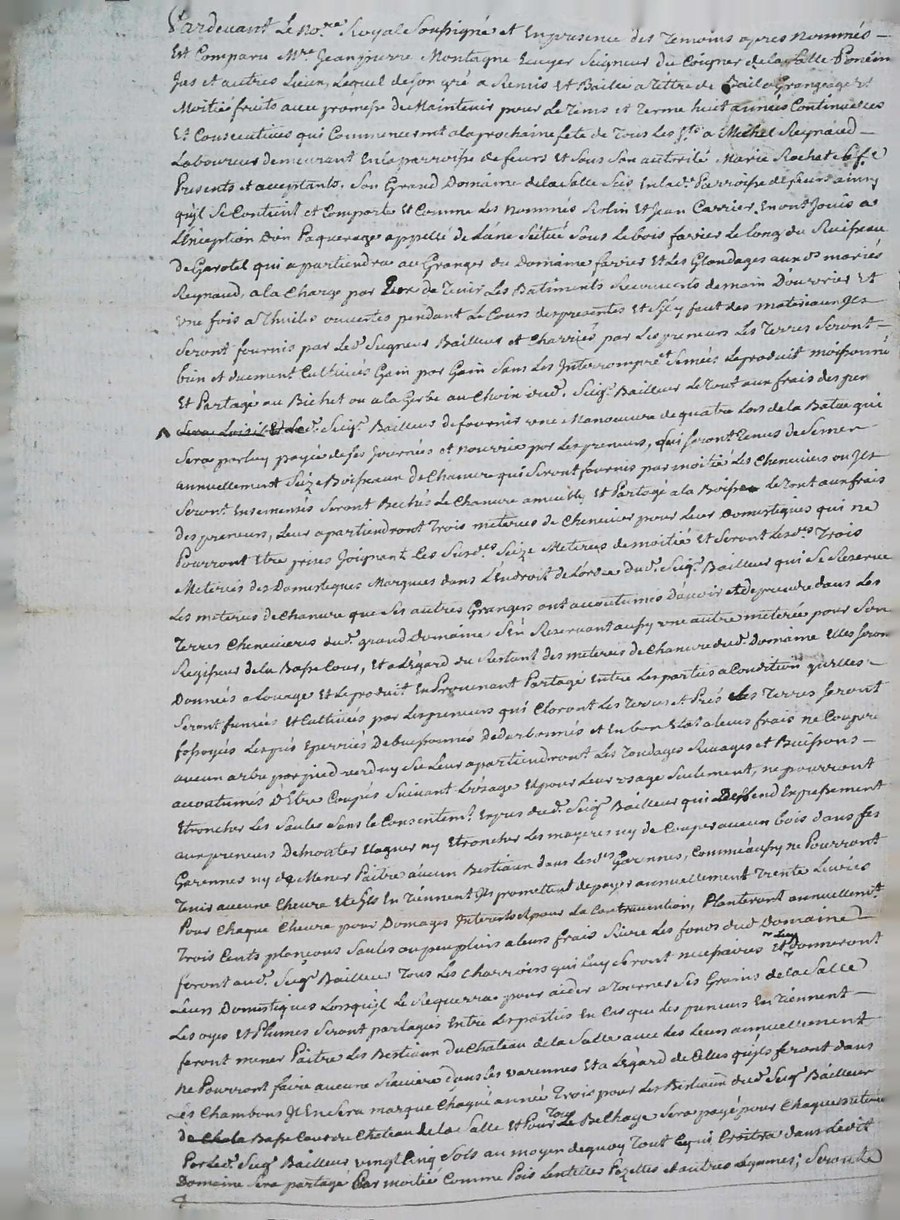 Pardevant Le No.re Royal Soussigné et En presence des Temoins apres nommés
Est Comparu M.re Jeanpierre Montagne Ecuyer Seigneur du Coigner de la Salle Poncin
Jas et autres Lieux, Lequel de son gré a Remis Et Baillé a Tittre de Bail a Grangeage et
Moitié fruits avec promesse de Maintenir pour Le Tems et Terme huit années Continuelles
Et Consecutives qui Commenceront a la prochaine fete de Tous Les S.ts a Michel Reynaud
Laboureur demeurant En la parroisse de feurs Et Sous Son autorité Marie Rochat
Presents et acceptants. Son Grand Domaine de la Salle Sis En lad.e Parroisse de feurs ainsy
qu'il Se Contient et Comporte Et Comme Les nommés Rolin Et Jean Carrier En ont Jouis a
L'exception D'un Paquerage appellé de L'ane Scitué Sous Le bois farries Le long du Ruisseau
de Garotel qui apartiendra au Granger du Domaine farries Et Les Glandages aux d.s mariés
Reynaud, a la Charge par Eux de Tenir Les Batiments Recouverts de main D'ouvrier Et
vne fois a Thuiles ouvertes pendant Le Cours des presentes Et S'il y faut des materiaux Ils
Seront fournis par Led.t Seigneur Bailleur et Charriés par Les preneurs Les Terres Seront
bien et duement Cultivées Gain par Gain Sans Les Interrompre et Semées Le produit moissonné
Et Partagé au Bichet ou a la Gerbe au Choix dud.t Seig.r Bailleur Le Tout aux frais des pre
Sera Loisible aud.t Seig.r Bailleur de fournir vne Manoeuvre de quatre Lors de la Batue qui
Sera par luy payée de ses Journées et nourrie par Les preneurs, qui Seront Tenus de Semer
annuellement Seize Boisseaux de Chanvre qui Seront fournis par moitié Les Cheneviers ou Ils
Seront Ensemencés Seront Bechés Le Chanvre Et Partagé a la Le Tout aux frais
des preneurs, Leur apartiendront Trois meterées de Chenevier pour Leur Domestiques qui ne
Pourront Etre prises Joignant Les Susd.es Seize Meterées de moitiée Et Seront Lesd.es Trois
Meterées des Domestiques Marquées dans L'Endroit de L'ordre dud.t Seig.r Bailleur qui Se Reserve
Les meterées de Chanvre que Ses autres Grangers ont accoutumés D'avoir et de prendre dans Les
Terres Chenevieres dud.t grand Domaine S'En Reservant aussy vne autre meterée pour Son
Regisseur de la Basse Cour, Et a L'Egard du Restant des meterées de Chanvre dud.t Domaine Elles Seront
Données a Louage Et Le produit En Provenant Partagé Entre Les parties a Condition qu'elles
Seront fumées Et Cultivées par Les preneurs qui Cloront Les Terres et Prés Les Terres Seront
fossoyées Les prés Eperriés Debuissonnés et En bon Etat a leurs frais ne Couperont
aucun arbre par pied verd ny Sec Leur apartiendront Les Tondages Sciages et Buissons
accoutumés D'Etre Coupés Suivant L'Usage Et pour Leur Usage Seulement, ne pourront
Etroncher Les Saules Sans le Consentem.t Exprès dud.t Seig.r Bailleur qui Deffend Expressement
aux preneurs De monter Elaguer ny Etroncher Les mayeres ny de Couper aucun bois dans Ses
Garennes ny de Mener Paitre aucun Bestiaux dans Lesd.es Garennes, Comme aussy ne Pourront
Tenir aucune Chevre Et S'ils En Tiennent Ils promettent de payer annuellement Trente Livres
Pour Chaque Chevre pour Domages Interets Et pour La Contravention, Planteront annuellem.t
Trois Cents plançons Saules ou peupliers a leurs frais Rière Les fonds dud.t Domaine
feront aud.t Seig.r Bailleur Tous Les Charrois qui Luy Seront necessaires Et luy Donneront
Leurs Domestiques Lorsqu'il Le Requerra pour aider a Tourner Ses Grains de la Salle
Les oyes Et Plumes Seront partagées Entre Les parties En Cas que Les preneurs En Tiennent
feront mener Paitre Les Bestiaux du Chateau de la Salle avec Les Leurs annuellement
Ne Pourront faire aucune dans Les varennes Et a L'égard de Celles qu'ils feront dans
Les Chambons Il En Sera marqué Chaque année Trois pour Les Bestiaux dud.t Seig.r Bailleur
de la Basse Cour du Chateau de la Salle Et Pour Tout Le Belhage Sera payé pour Chaque
Par Led.t Seig.r Bailleur vingt Cinq Sols au moyen de quoy Tout Ce qui Croitra dans Le dit
Domaine Sera partagé Par moitiée Comme Pois Lentilles Pazelles et autres Legumes; Seront